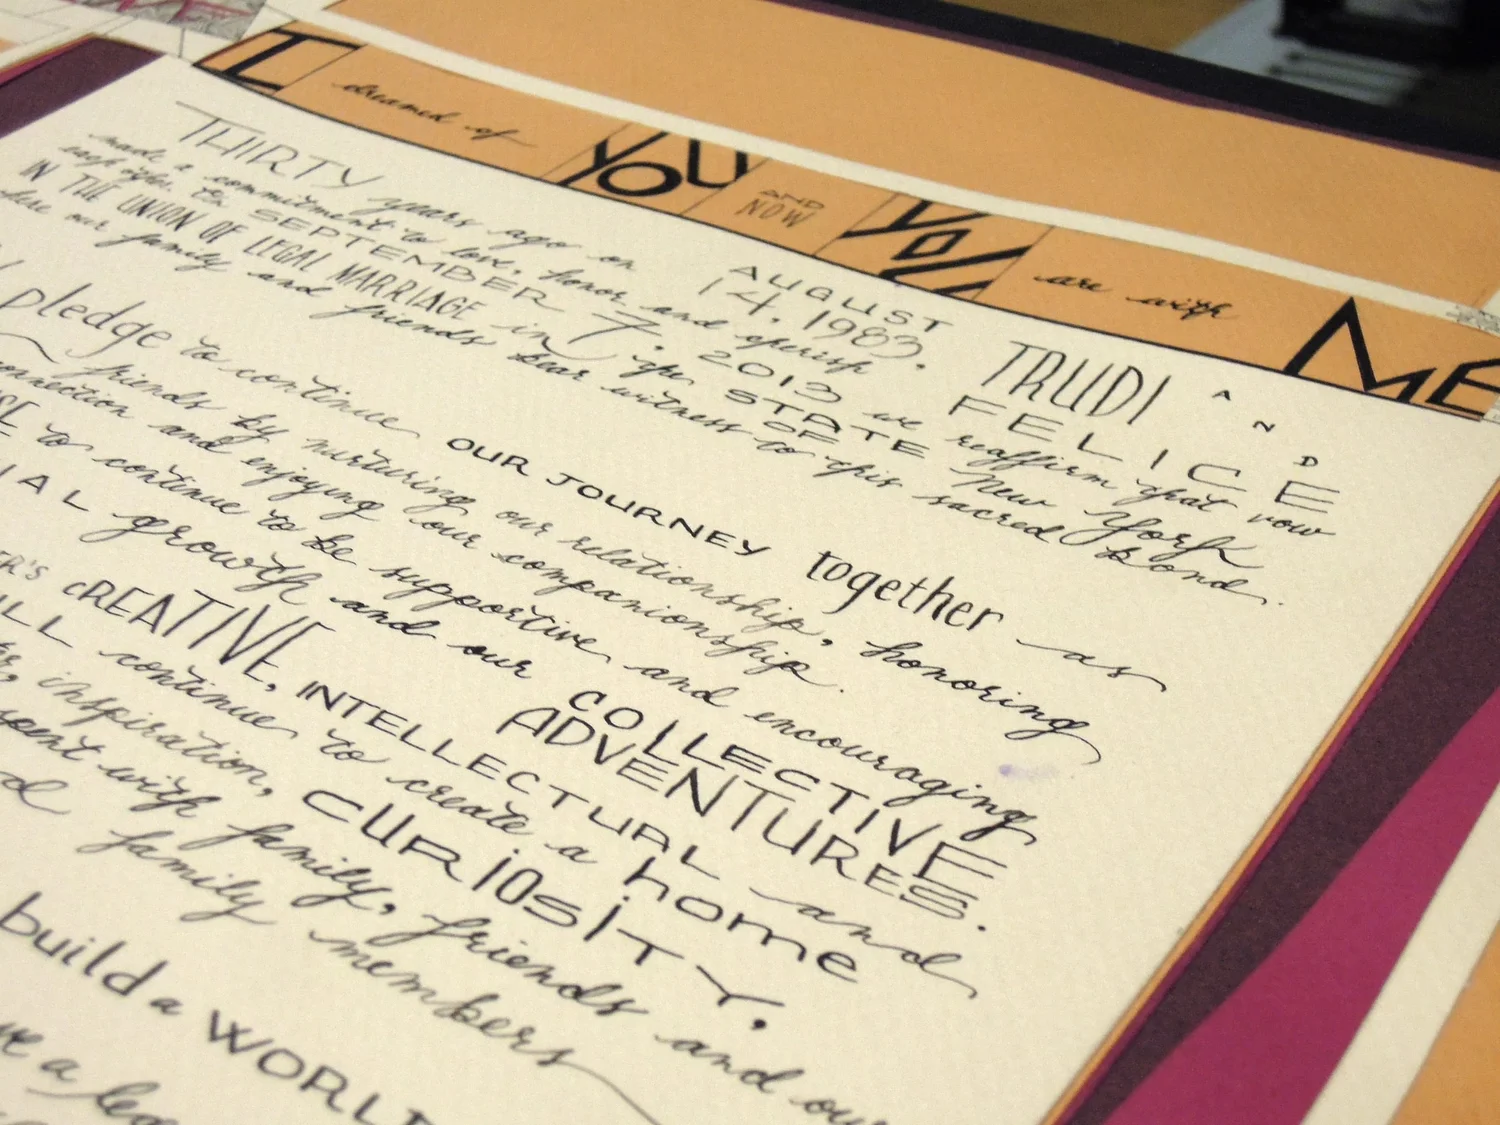 I dreamed of YOU AND NOW YOU are with ME
THIRTY years ago on AUGUST 14, 1983, TRUDI AND FELICE
made a commitment to love, honor and cherish
each other. On SEPTEMBER 7, 2013 we reaffirm that vow
IN THE UNION OF LEGAL MARRIAGE in the STATE OF New York
where our family and friends bear witness to this sacred bond.
pledge to continue OUR JOURNEY together as
friends by nurturing our relationship, honoring
connection and enjoying our companionship.
to continue to be supportive and encouraging
growth and our COLLECTIVE ADVENTURES.
CREATIVE, INTELLECTUAL and
continue to create a home
inspiration, CURIOSITY,
spent with family, friends and our
family members
build a WORLD
a